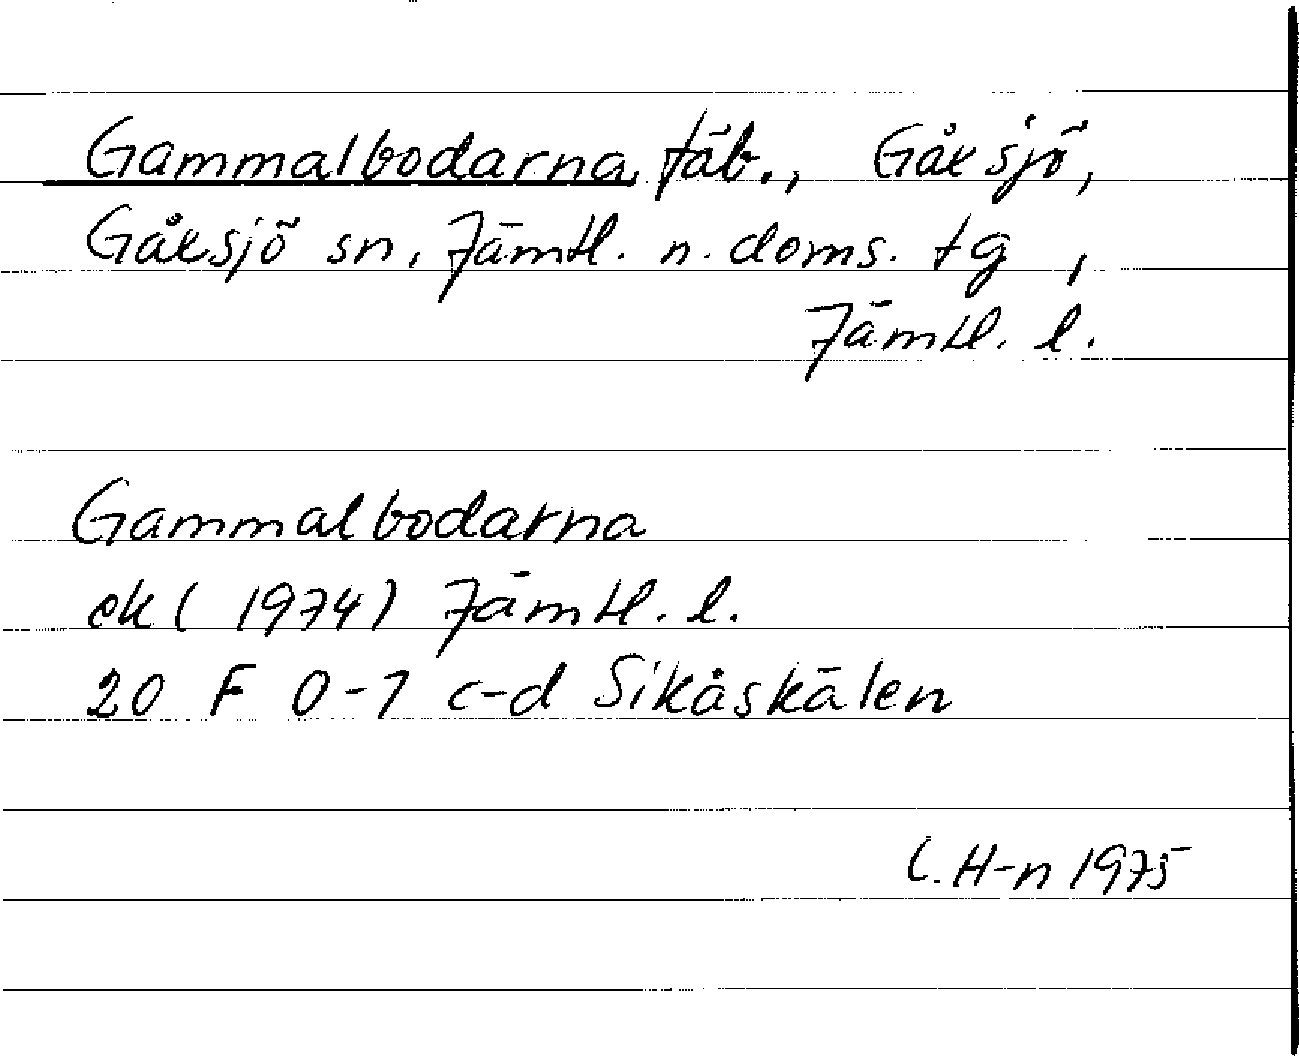 Gammalbodarna, fäb., Gåxsjö,
Gåxsjö sn, Jämtl. n. doms. tg,
Jämtl. l.
Gammalbodarna
ek (1974) Jämtl. l.
20 F 0-1 c-d Sikåskälen
C. H-n 1975